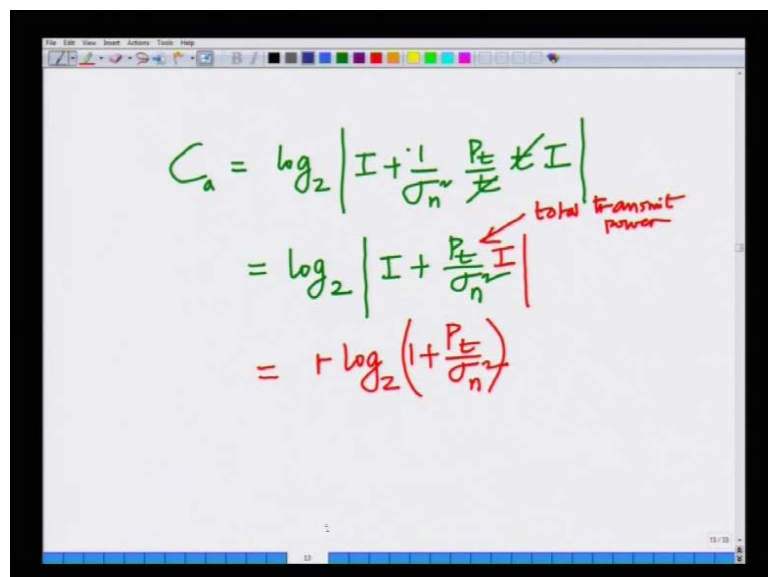 File Edit View Insert Actions Tools Help
B I
Cₐ = log₂ | I + 1/σₙ² Pₜ/t t I |
total transmit power
= log₂ | I + Pₜ/σₙ² I |
= r log₂ (1 + Pₜ/σₙ²)
13/33
13